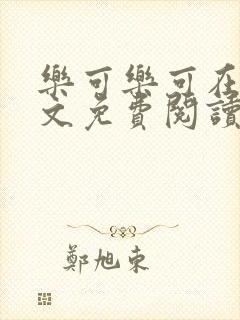 樂可樂可在
文免費閱讀
鄭旭東